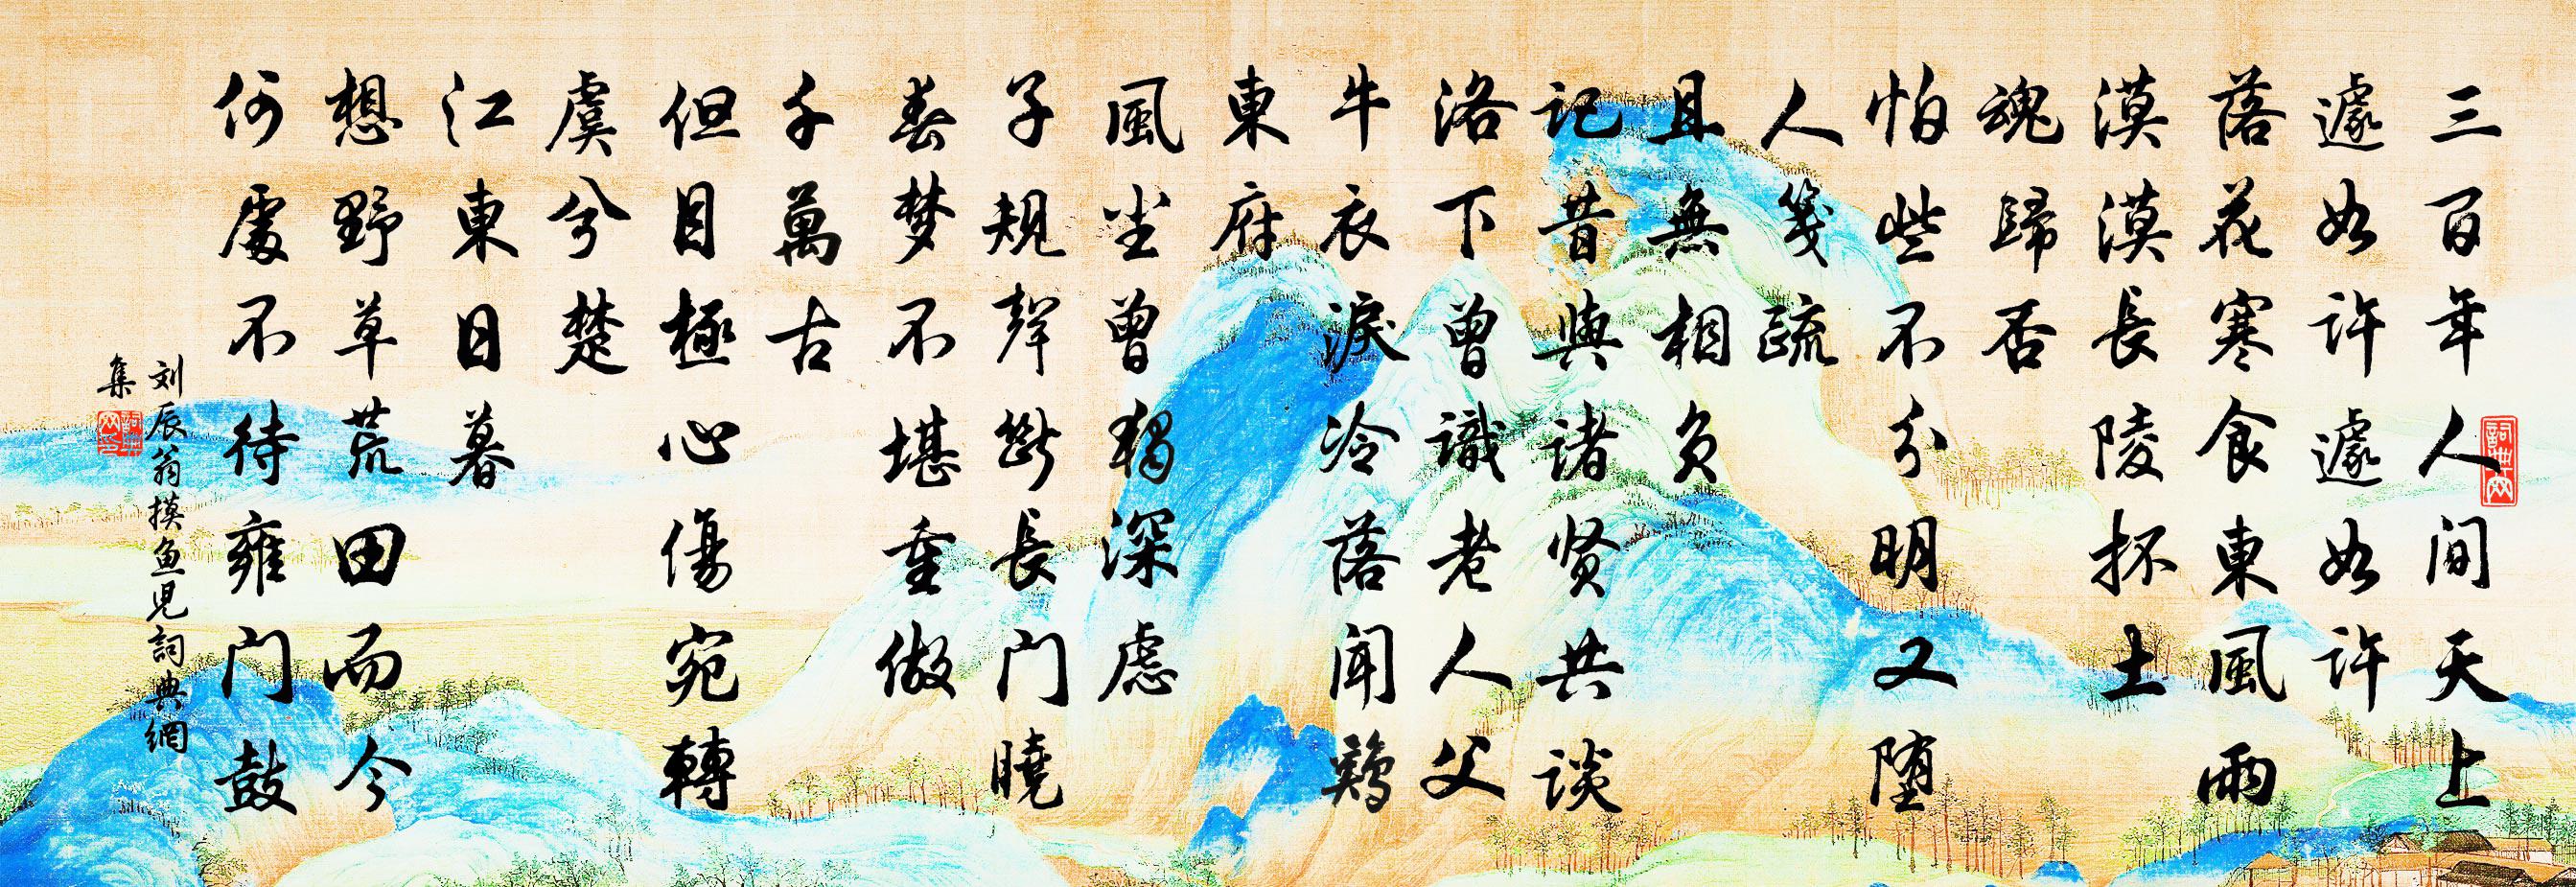 三百年人间天上
遽如许遽如许
落花寒食東風雨
漠漠長陵抔土
魂歸否
怕些不分明又堕
人箋疏
且無相負
记昔與诸贤共谈
洛下曾識老人父
牛衣淚冷落闻鷄
東府
風尘曾獨深虑
子規聲斷長门曉
春梦不堪重做
千萬古
但目極心傷宛轉
虞兮楚
江東日暮
想野草荒田而今
何處不待雍门鼓
刘辰翁摸鱼児詞典網
集